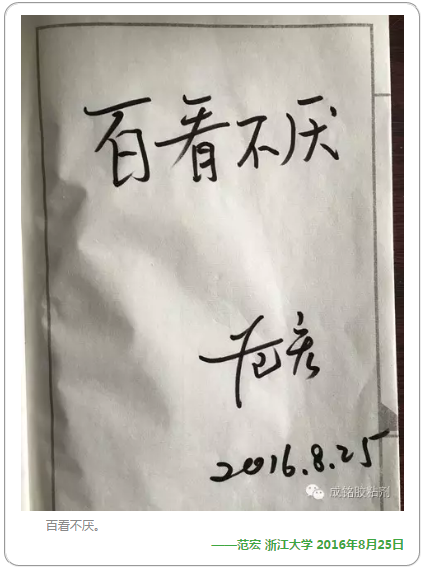 百看不厌
范宏
2016.8.25
成铭胶粘剂
百看不厌。
——范宏 浙江大学 2016年8月25日